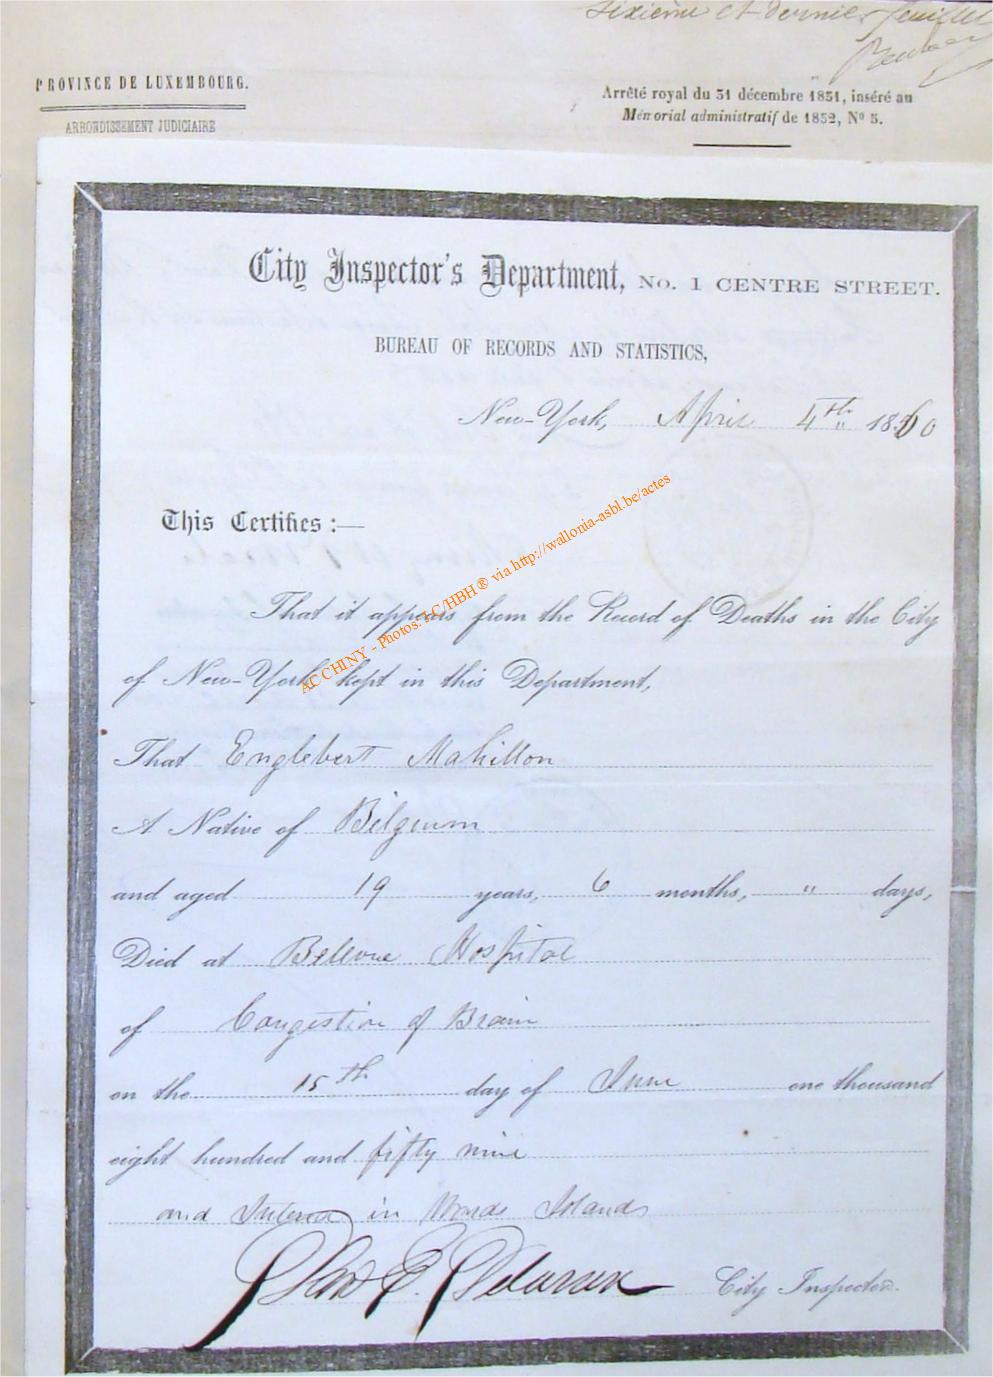 Sixième et dernier feuillet
PROVINCE DE LUXEMBOURG.
ARRONDISSEMENT JUDICIAIRE
Arrêté royal du 31 décembre 1851, inséré au
Mémorial administratif de 1852, No 5.
City Inspector's Department, No. 1 CENTRE STREET.
BUREAU OF RECORDS AND STATISTICS,
New-York, April 4th 1860
This Certifies :—
That it appears from the Record of Deaths in the City
of New-York kept in this Department,
That Englebert Mahillon
A Native of Belgium
and aged 19 years, 6 months, " days,
Died at Bellevue Hospital
of Congestion of Brain
on the 15th day of June one thousand
eight hundred and fifty nine
and Intered in Wards Islands
City Inspector.
AC CHINY - Photos: LC/HBH® via http://wallonia-asbl.be/actes